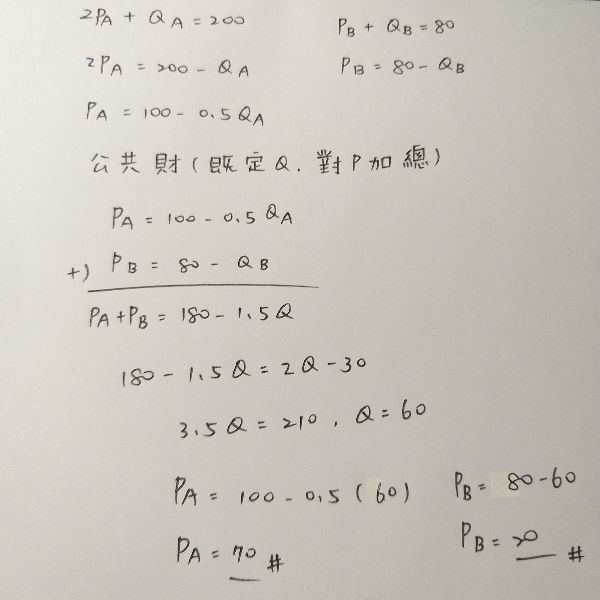 2PA + QA = 200
PB + QB = 80
2PA = 200 - QA
PB = 80 - QB
PA = 100 - 0.5QA
公共財(既定Q.對P加總)
PA = 100 - 0.5QA
+) PB = 80 - QB
PA+PB = 180 - 1.5Q
180 - 1.5Q = 2Q - 30
3.5Q = 210 , Q = 60
PA = 100 - 0.5(60)
PB = 80 - 60
PA = 70 #
PB = 20 #